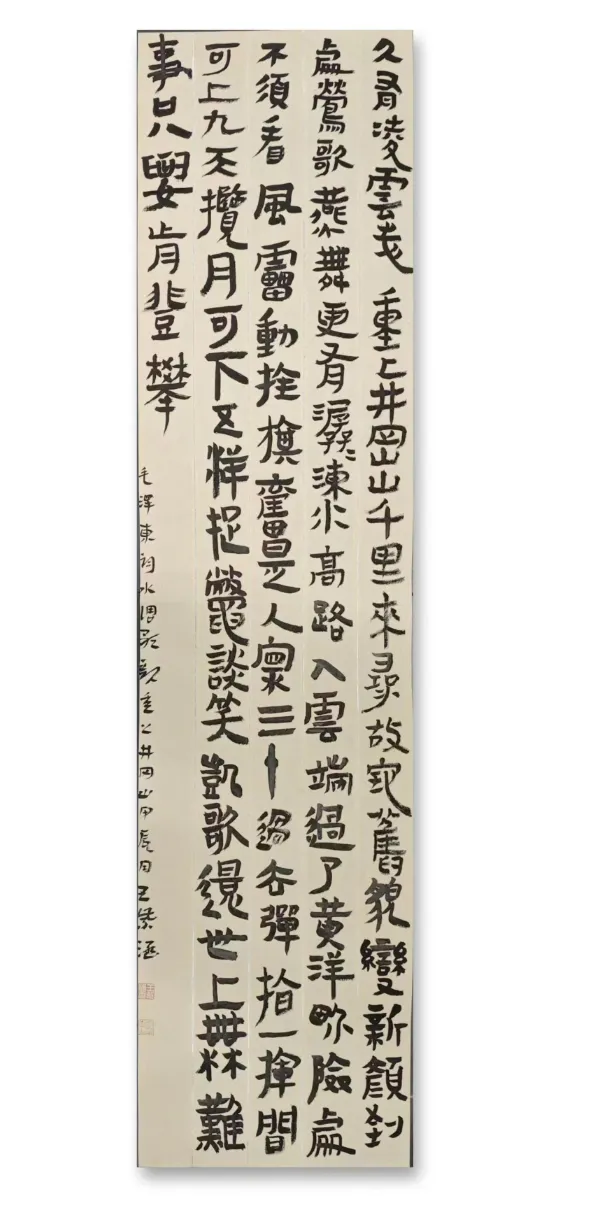 久有凌雲志重上井岡山千里來尋故地舊貌變新顏到
處鶯歌燕舞更有潺〻流水高路入雲端過了黃洋界險處
不須看風雷動旌旗奮是人寰三十過去彈指一揮間
可上九天攬月可下五洋捉鱉談笑凱歌還世上無難
事只要肯登攀
毛澤東詞水調歌頭重上井岡山甲辰月王紫涵